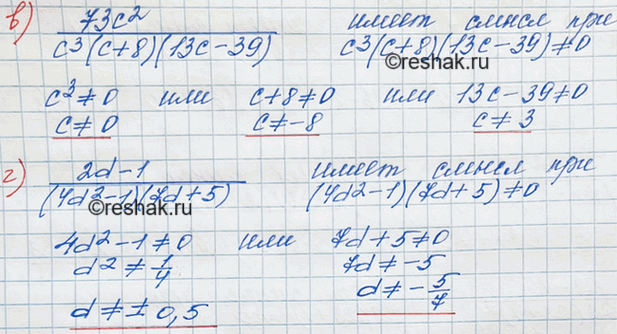 в) 73c² / c³(c+8)(13c−39) имеет смысл при
c³(c+8)(13c−39)≠0
©reshak.ru
c³≠0 или c+8≠0 или 13c−39≠0
c≠0 c≠−8 c≠3
г) 2d−1 / (4d²−1)(7d+5) имеет смысл при
(4d²−1)(7d+5)≠0
©reshak.ru
4d²−1≠0 или 7d+5≠0
d²≠1/4 7d≠−5
d≠±0,5 d≠−5/7